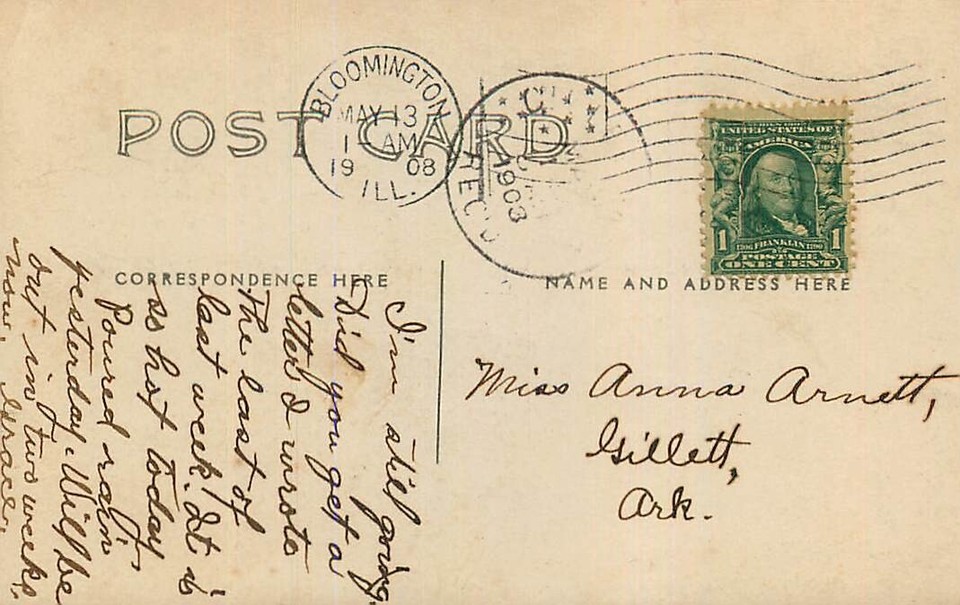 POST CARD
BLOOMINGTON
MAY 13
1 AM
19 08
ILL.
REC'D
1903
UNITED STATES OF
AMERICA
1 FRANKLIN 1
POSTAGE
ONE CENT
CORRESPONDENCE HERE
NAME AND ADDRESS HERE
I'm still going.
Did you get a
letter I wrote
the last of
last week? It is
so hot today
Poured rain
yesterday. Will be
out in two weeks
now. Grace.
Miss Anna Arnett,
Gillett,
Ark.